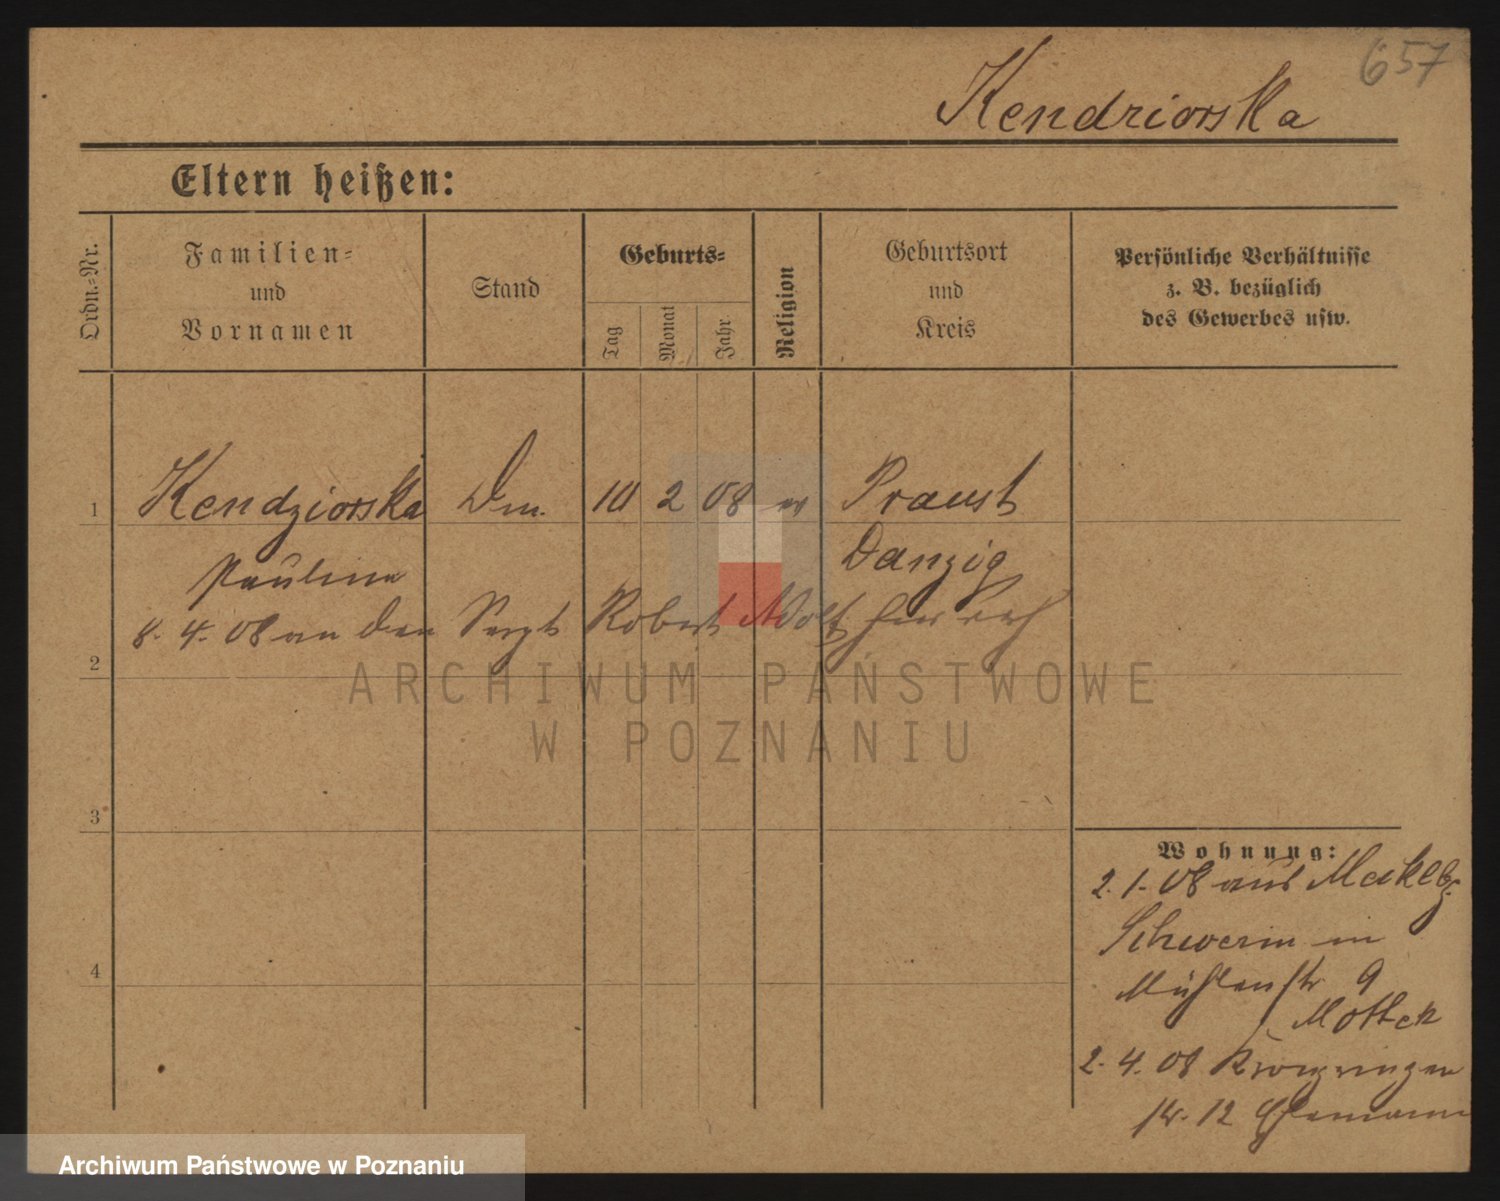 657
Kendziorska
Eltern heißen:
Ordn.=Nr.
Familien=
und
Vornamen
Stand
Geburts=
Tag
Monat
Jahr
Religion
Geburtsort
und
Kreis
Persönliche Verhältnisse
z. B. bezüglich
des Gewerbes usw.
1 Kendziorska 10 2 08 Praust
Paulina Danzig
8. 4. 08 an den Sergt Robert Adolf
2
3
4
Wohnung:
2. 1. 08 aus Meklbg.
Schwerin in
Mühlenstr 9
2. 4. 08
12 Ehemann
ARCHIWUM PAŃSTWOWE
W POZNANIU
Archiwum Państwowe w Poznaniu